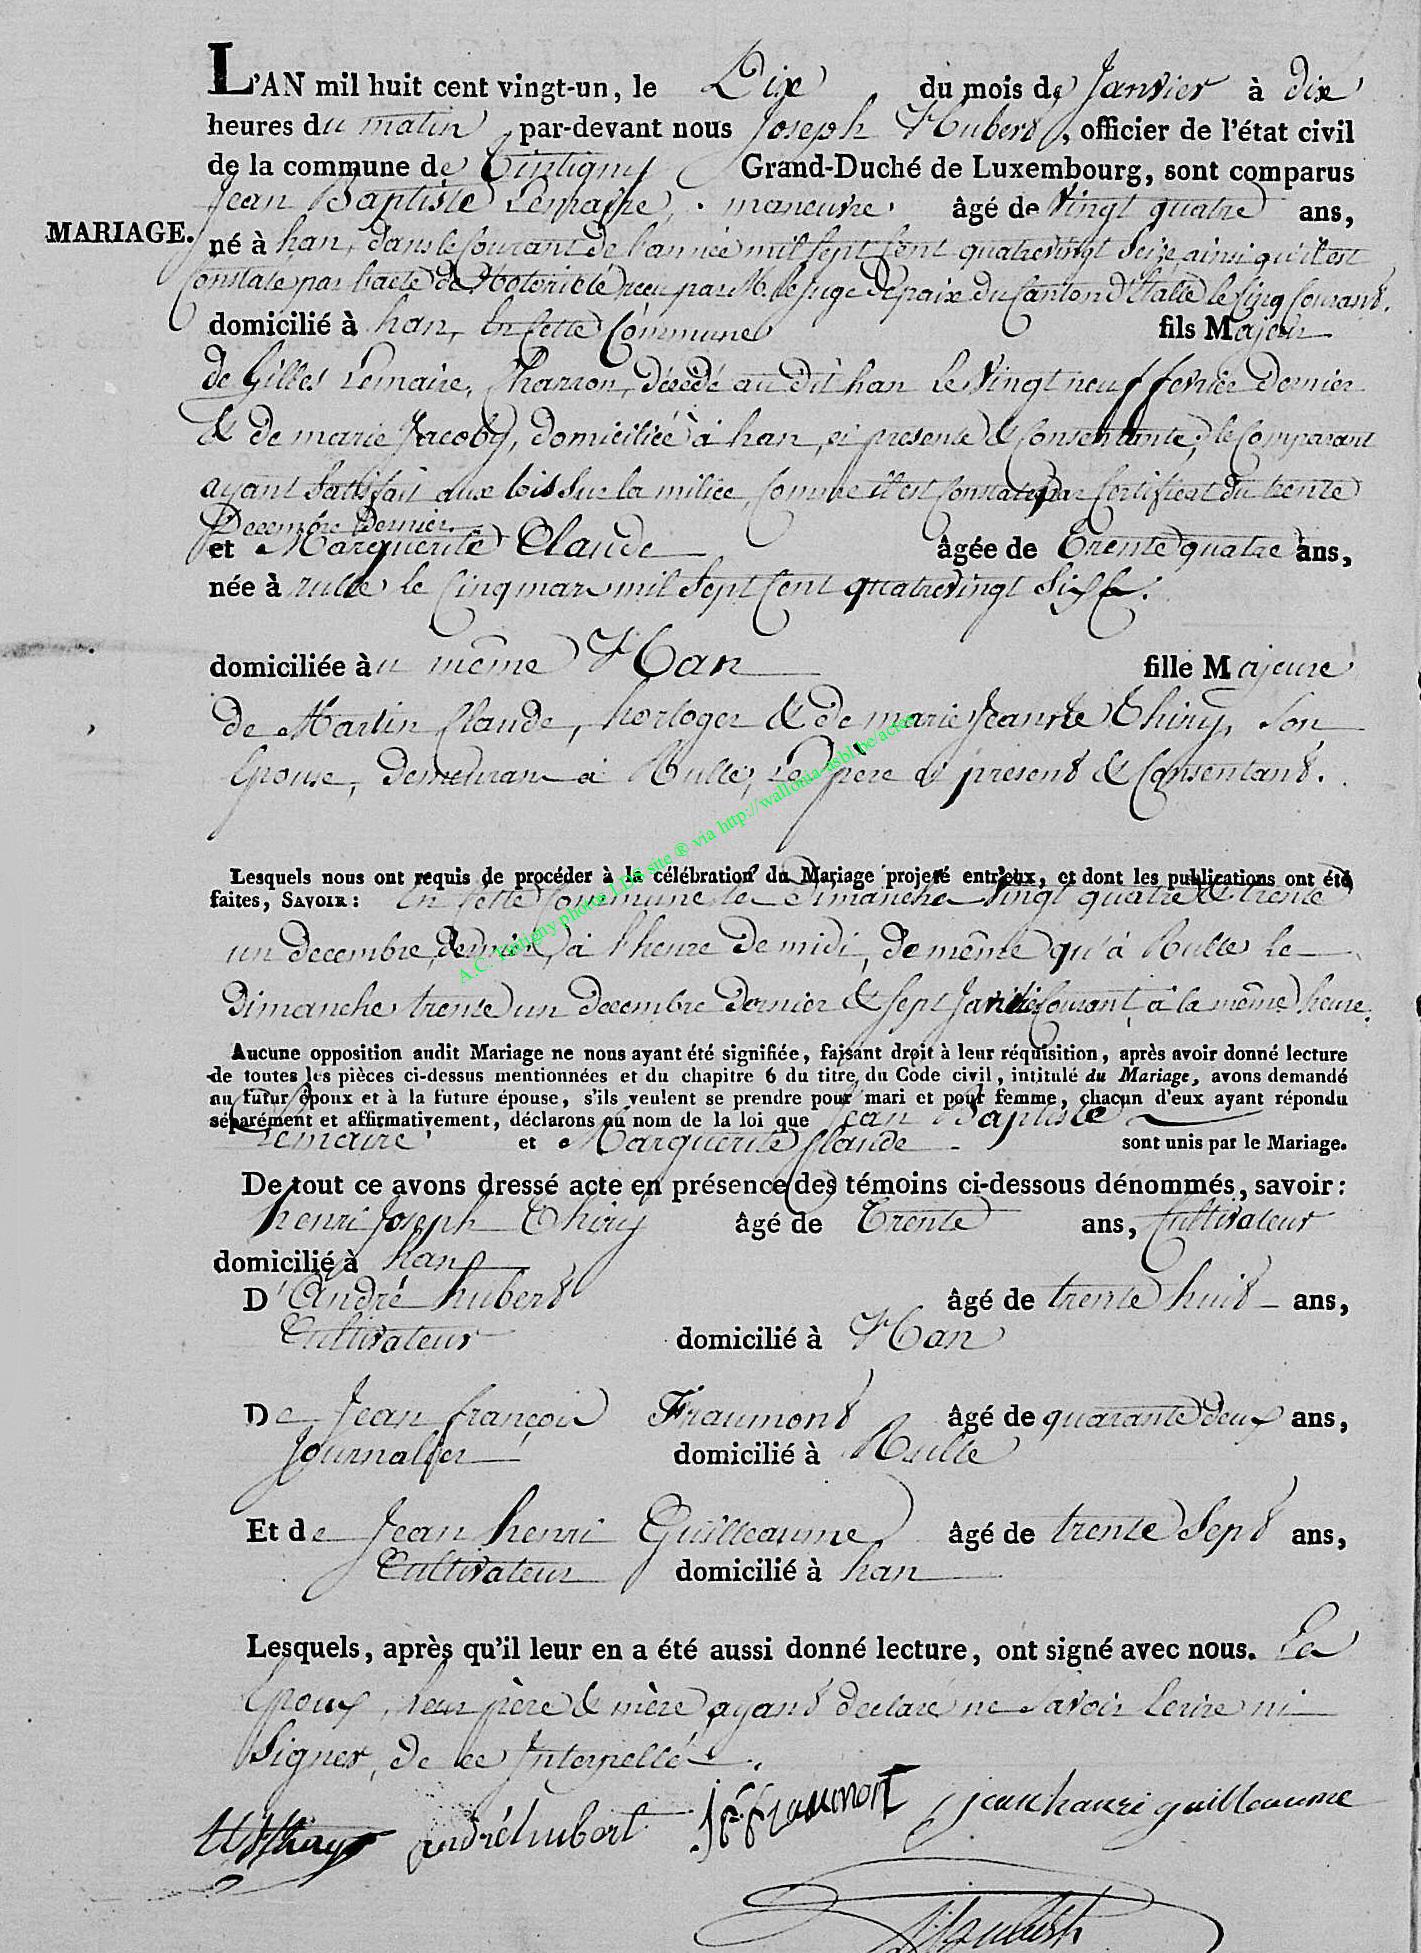 L'AN mil huit cent vingt-un, le Dix du mois de Janvier à dix
heures du matin par-devant nous Joseph Hubert, officier de l'état civil
de la commune de Tintigny Grand-Duché de Luxembourg, sont comparus
Jean Baptiste Lemaire, maneuvre âgé de Vingt quatre ans,
MARIAGE.
né à han, dans le Courant de l'année mil sept Cent quatrevingt Seize, ainsi qu'il est
Constaté par l'acte de Notoriété recu par M. le Juge de paix du Canton d'Etalle le Cinq Courant.
domicilié à han, en Cette Commune fils Majeur
de Gilles Lemaire, Charron, décédé au dit han le Vingt neuf fevrier dernier
& de marie Jacoby, domiciliée à han, ci presente & Consentante; le Comparant
ayant Satisfait aux lois Sur la milice, Comme il est Constaté par Certificat du trente
Decembre Dernier.
et Marguerite Claude âgée de Trente quatre ans,
née à rulle le Cinq mars mil Sept Cent quatrevingt Six.
domiciliée à u même Han fille Majeure
de Martin Claude, horloger & de marie Jeanne Thiry, Son
Epouse, demeurans à Rulle, Le père ci present & Consentant.
Lesquels nous ont requis de procéder à la célébration du Mariage projeté entr'eux, et dont les publications ont été
faites, SAVOIR : En Cette Commune les Dimanches Vingt quatre & trente
un decembre dernier, à l'heure de midi, de même qu'à Rulle le
Dimanches trente un decembre dernier & Sept Janvier Courant, à la même heure.
Aucune opposition audit Mariage ne nous ayant été signifiée, faisant droit à leur réquisition, après avoir donné lecture
de toutes les pièces ci-dessus mentionnées et du chapitre 6 du titre du Code civil, intitulé du Mariage, avons demandé
au futur époux et à la future épouse, s'ils veulent se prendre pour mari et pour femme, chacun d'eux ayant répondu
séparément et affirmativement, déclarons au nom de la loi que Jean Baptiste
Lemaire et Marguerite Claude sont unis par le Mariage.
De tout ce avons dressé acte en présence des témoins ci-dessous dénommés, savoir :
henri Joseph Thiry âgé de Trente ans, Cultivateur
domicilié à han
D'André hubert âgé de trente huit ans,
Cultivateur domicilié à Han
De Jean françois Fraumont âgé de quarante deux ans,
Journalier domicilié à Rulle
Et de Jean henri Guilleaume âgé de trente Sept ans,
Cultivateur domicilié à han
Lesquels, après qu'il leur en a été aussi donné lecture, ont signé avec nous. Les
Epoux, leur père & mère ayant declaré ne Savoir Ecrire ni
Signer, de ce Interpellé.
andré hubert jf fraumont jean hanri guilleaume
J Hubert
A.C. Tintigny photos LDS site ® via http://wallonia-asbl.be/actes